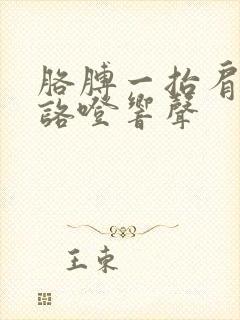 胳膊一抬肩
詻噔響聲
王東